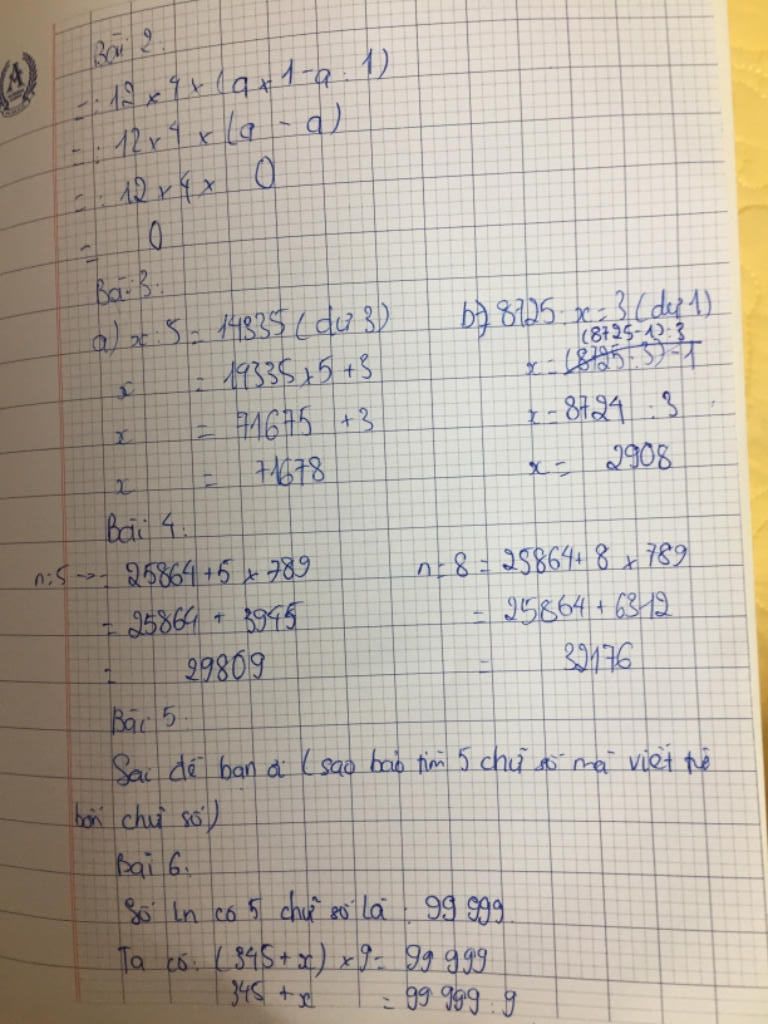 A
Bài 2.
=: 12 x 4 x (a x 1 - a : 1)
=: 12 x 4 x (a - a)
=: 12 x 4 x 0
= 0
Bài 3:
a) x : 5 = 14335 (dư 3)
x = 14335 x 5 + 3
x = 71675 + 3
x = 71678
b) 8725 : x = 3 (dư 1)
(8725 - 1) : 3
x = (8725 : 3) - 1
x = 8724 : 3
x = 2908
Bài 4:
n = 5 -> = 25864 + 5 x 789
= 25864 + 3945
= 29809
n = 8 = 25864 + 8 x 789
= 25864 + 6312
= 32176
Bài 5
Sai đề bạn ơi (sao bảo tìm 5 chữ số mà viết về
bốn chữ số)
Bài 6.
Số ln có 5 chữ số là : 99 999
Ta có: (345 + x) x 9 = 99 999
345 + x = 99 999 : 9